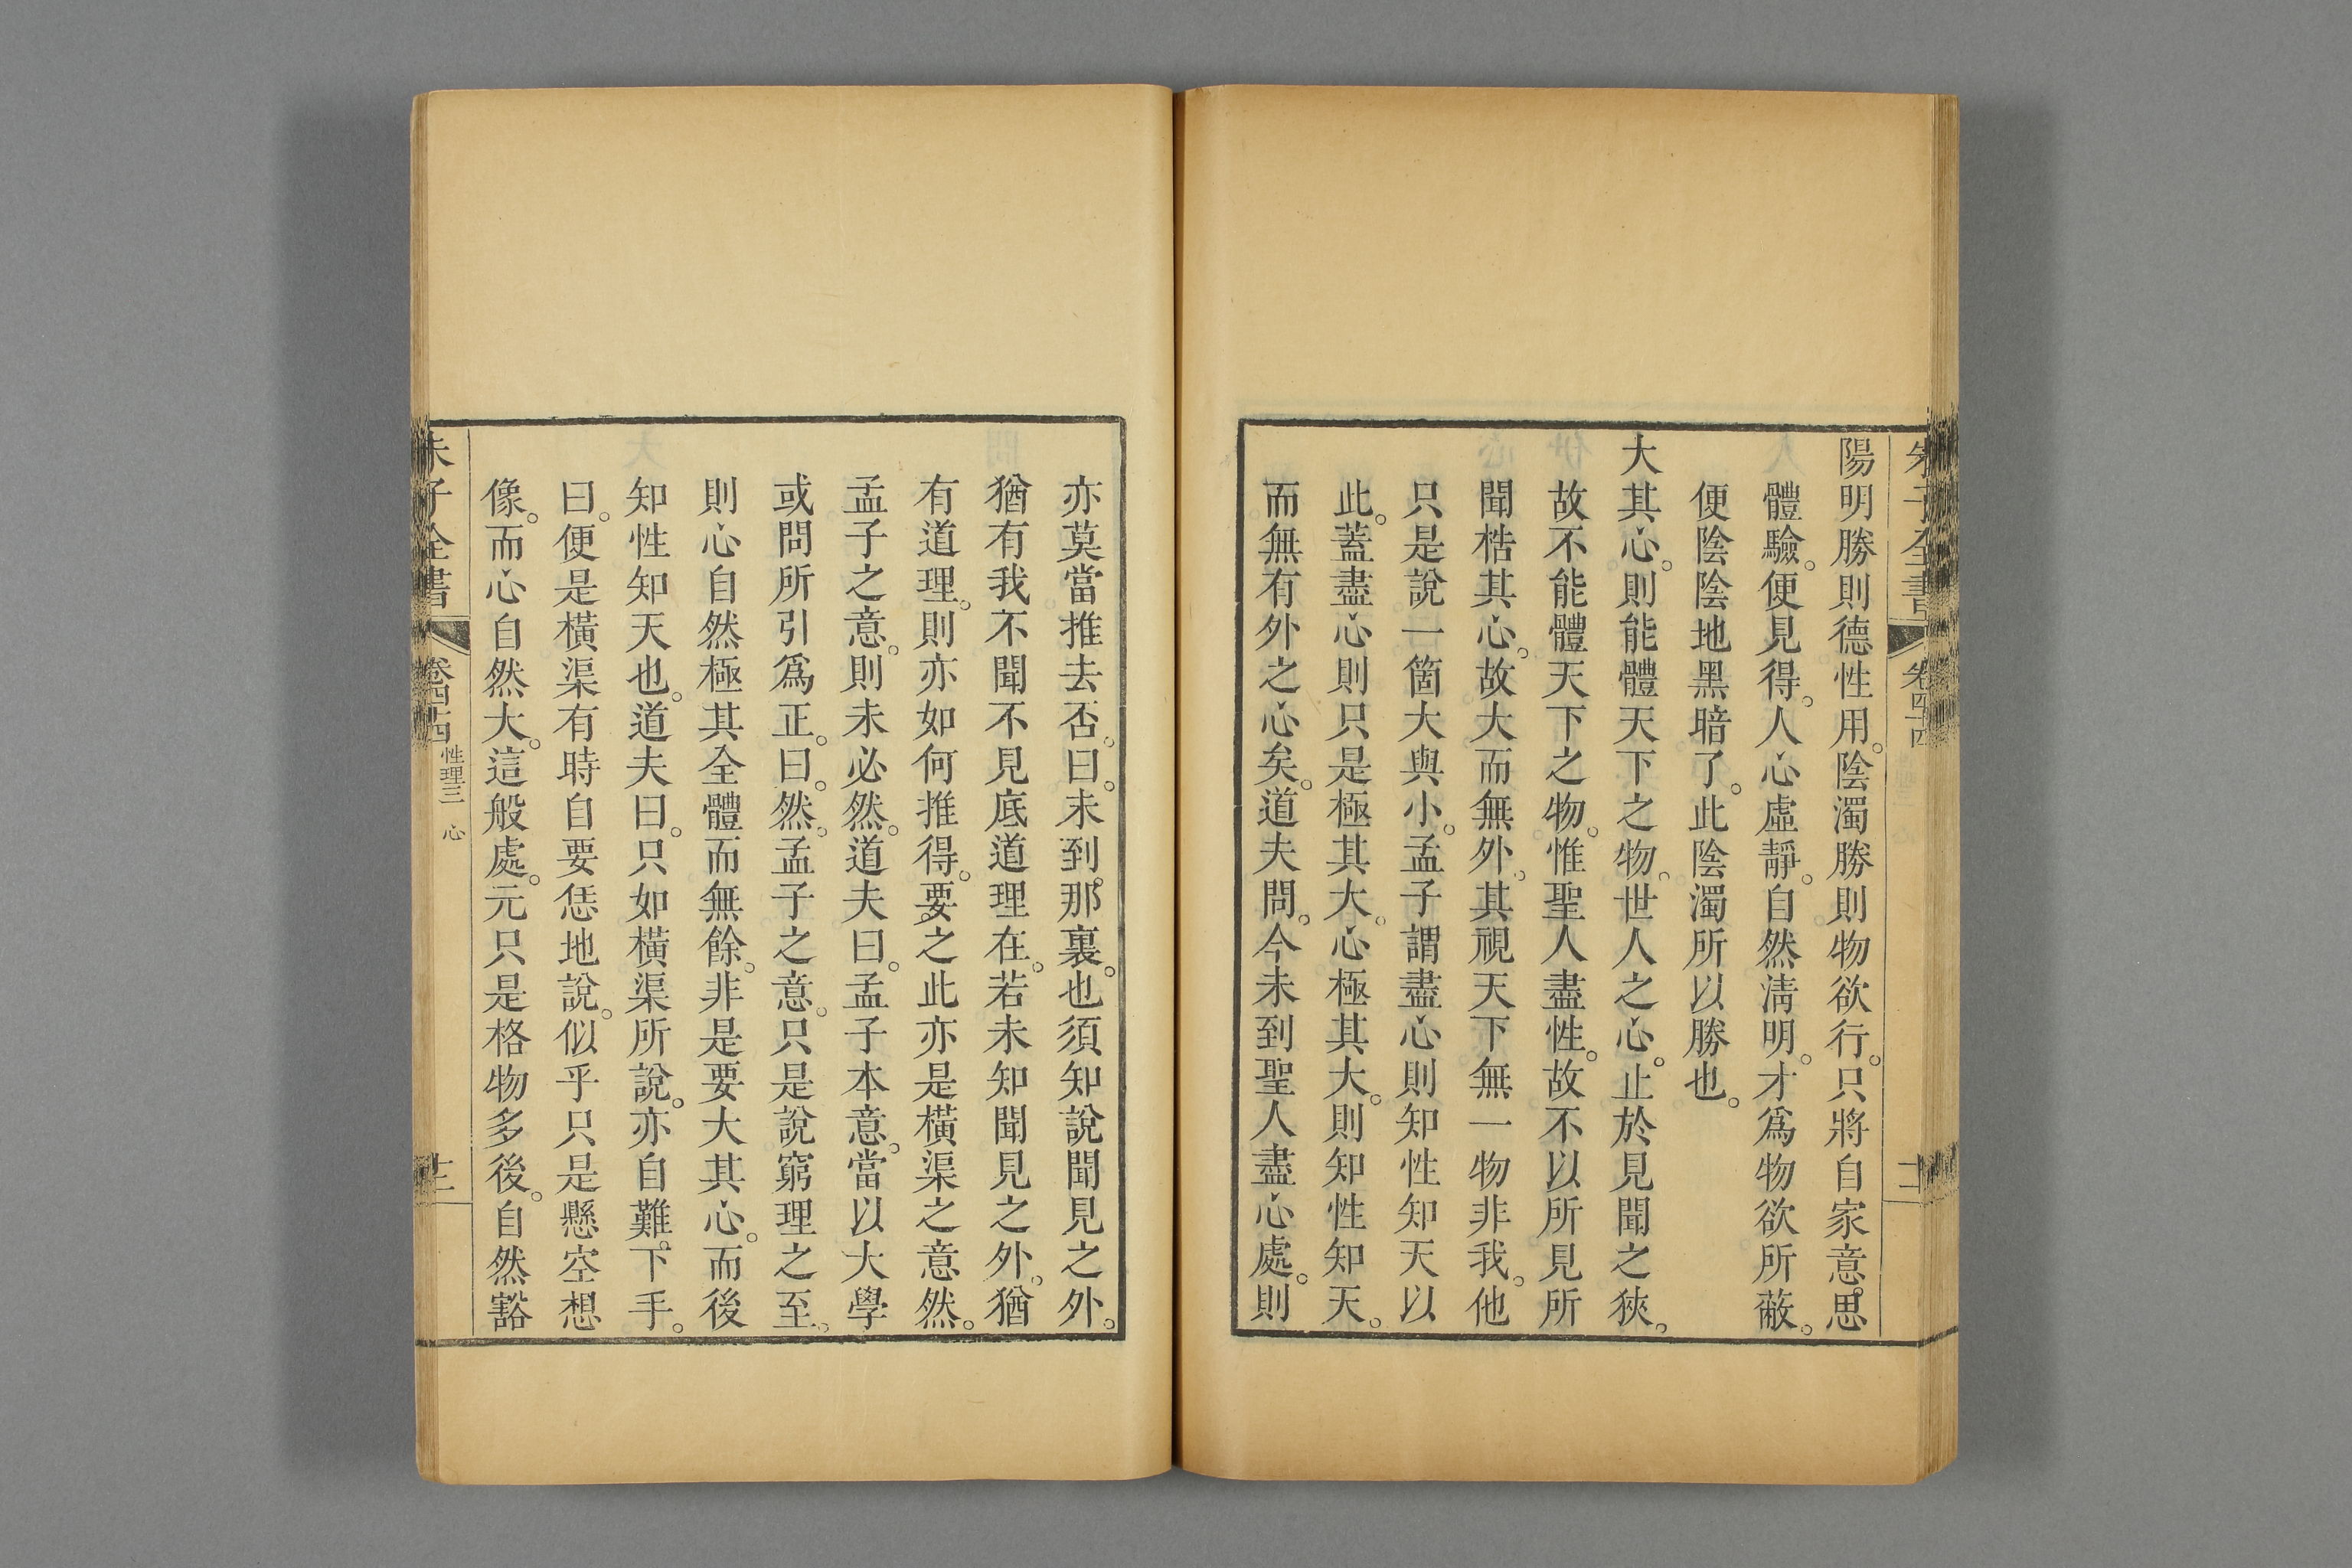 朱子全書 卷四十四
陽明勝則德性用。陰濁勝則物欲行。只將自家意思
體驗。便見得。人心虛靜。自然淸明。才爲物欲所蔽。
便陰陰地黑暗了。此陰濁所以勝也。
大其心。則能體天下之物。世人之心。止於見聞之狹。
故不能體天下之物。惟聖人盡性。故不以所見所
聞梏其心。故大而無外。其視天下無一物非我。他
只是說一箇大與小。孟子謂盡心則知性知天以
此。蓋盡心則只是極其大。心極其大。則知性知天。
而無有外之心矣。道夫問。今未到聖人盡心處。則
亦莫當推去否。曰。未到。那裏。也須知說聞見之外。
猶有我不聞不見底道理在。若未知聞見之外。猶
有道理。則亦如何推得。要之此亦是橫渠之意然。
孟子之意。則未必然。道夫曰。孟子本意。當以大學
或問所引爲正。曰。然。孟子之意。只是說窮理之至。
則心自然極其全體而無餘。非是要大其心。而後
知性知天也。道夫曰。只如橫渠所說。亦自難。下手。
曰。便是橫渠有時自要恁地說。似乎只是懸空想
像。而心自然大。這般處。元只是格物多後。自然豁
朱子全書 卷四十四 性理三 心